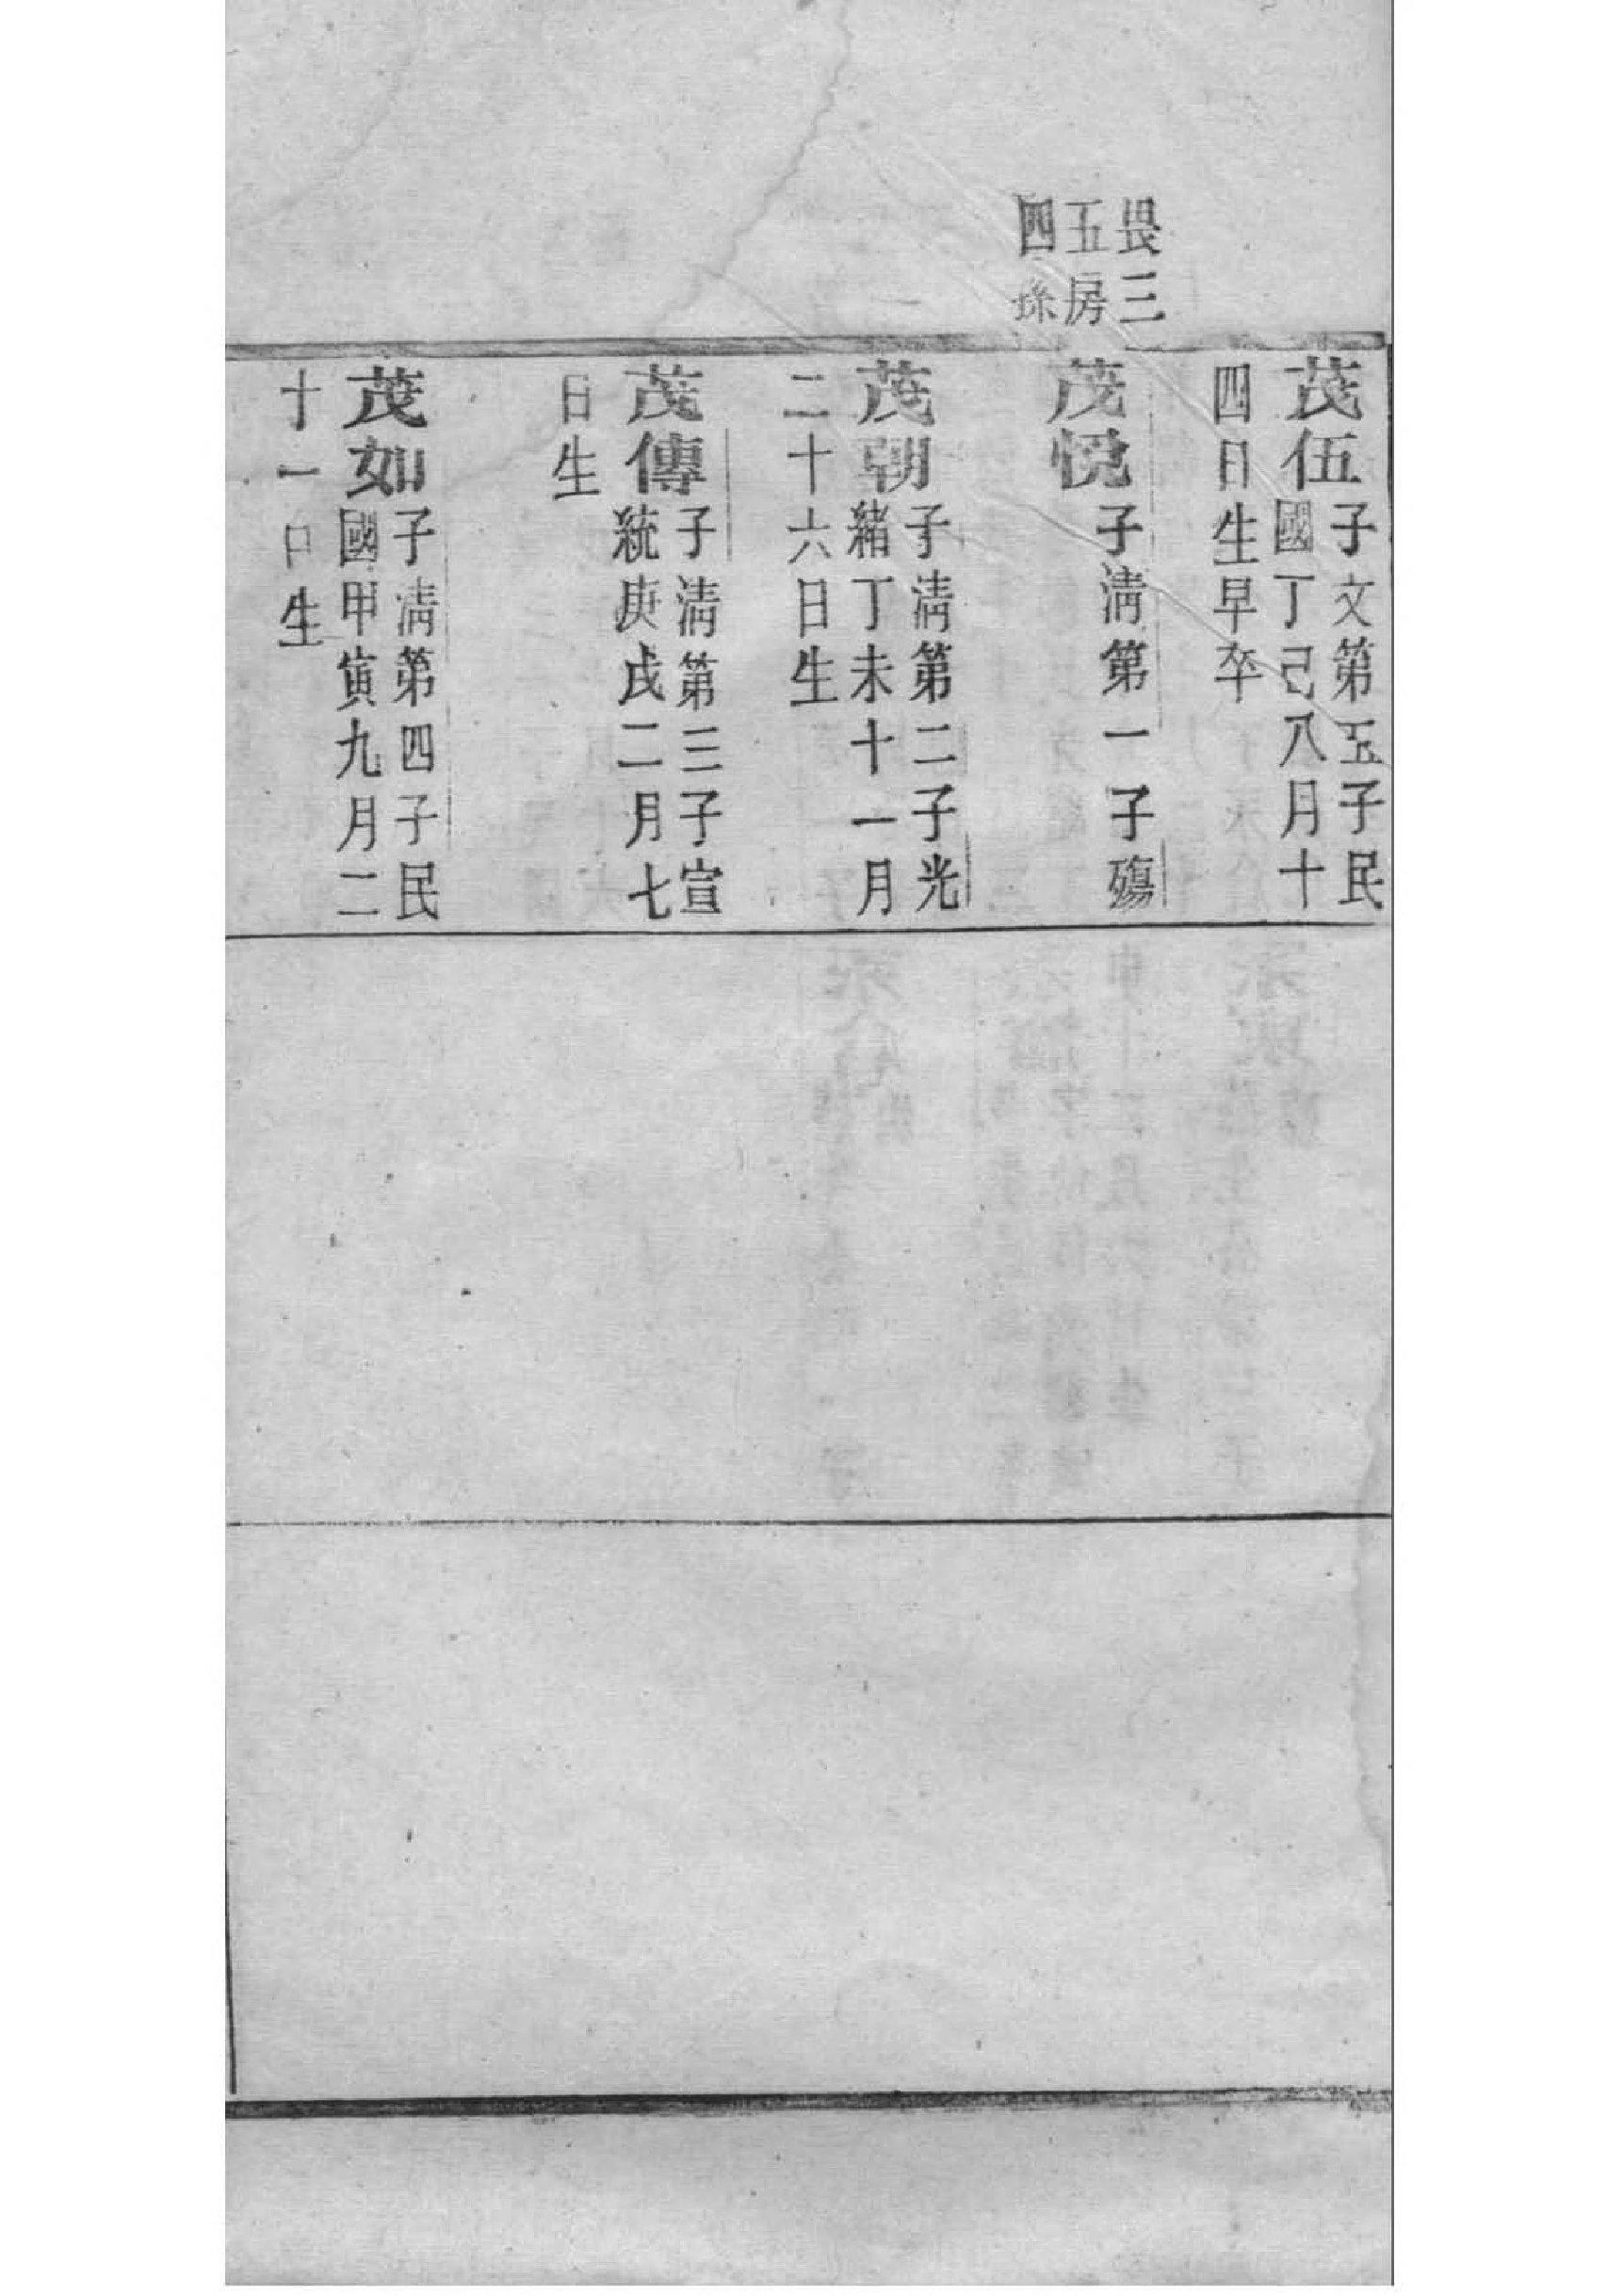 茂伍子文第五子民
國丁己八月十
四日生早卒
畏三
五房
四孫
茂悅子淸第一子殤
茂朝子淸第二子光
緒丁未十一月
二十六日生
茂傳子淸第三子宣
統庚戌二月七
日生
茂如子淸第四子民
國甲寅九月二
十一日生